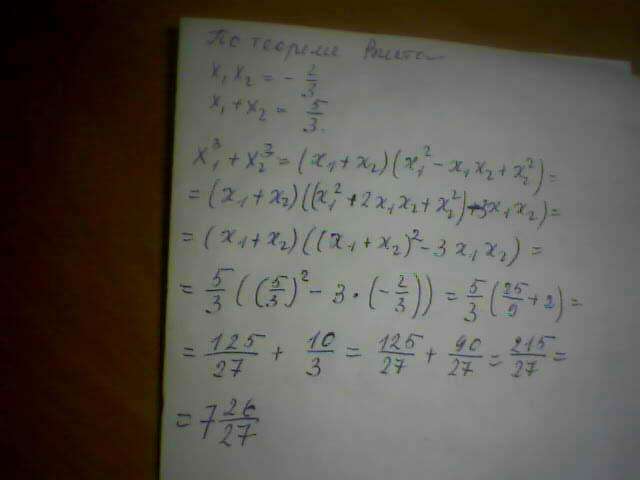 По теореме Виета
x₁x₂ = - 2/3
x₁ + x₂ = 5/3.
x₁³ + x₂³ = (x₁ + x₂)(x₁² - x₁x₂ + x₂²) =
= (x₁ + x₂)((x₁² + 2x₁x₂ + x₂²) - 3x₁x₂) =
= (x₁ + x₂)((x₁ + x₂)² - 3x₁x₂) =
= 5/3 ((5/3)² - 3 · (-2/3)) = 5/3 (25/9 + 2) =
= 125/27 + 10/3 = 125/27 + 90/27 = 215/27 =
= 7 26/27